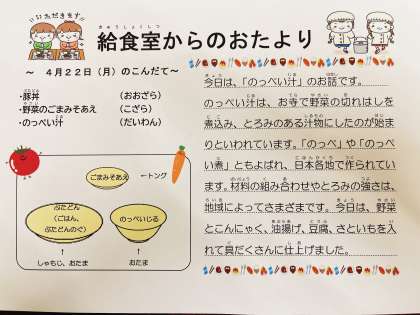 いただきます!!
給食室からのおたより
きゅうしょくしつ
~ 4月22日(月)のこんだて~
・豚丼 (おおざら)
・野菜のごまみそあえ (こざら)
・のっぺい汁 (だいわん)
ごまみそあえ
←トング
ぶたどん
(ごはん、
ぶたどんのぐ)
のっぺいじる
しゃもじ、おたま
おたま
今日は、「のっぺい汁」のお話です。
のっぺい汁は、お寺で野菜の切れはしを
煮込み、とろみのある汁物にしたのが始ま
りといわれています。「のっぺ」や「のっぺ
い煮」ともよばれ、日本各地で作られてい
ます。材料の組み合わせやとろみの強さは、
地域によってさまざまです。今日は、野菜
とこんにゃく、油揚げ、豆腐、さといもを入
れて具だくさんに仕上げました。